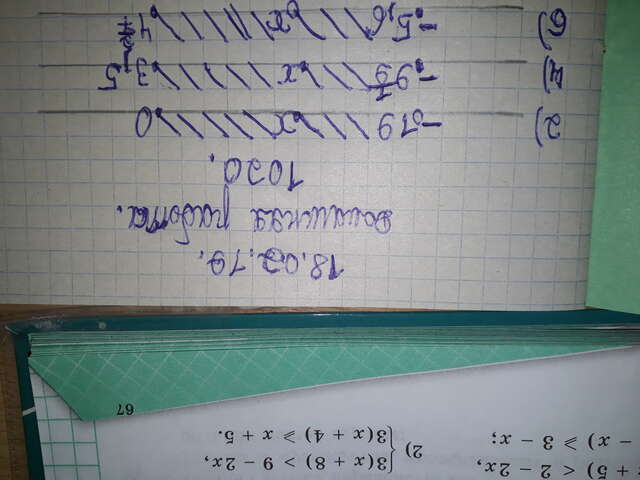 x + 5) < 2 − 2x,
− x) ⩾ 3 − x;
2) { 3(x + 8) > 9 − 2x,
3(x + 4) ⩾ x + 5.
67
18.02.19.
Домашняя работа.
1020.
2) -19 x 0
4) x 3,5
6) -5,6 x